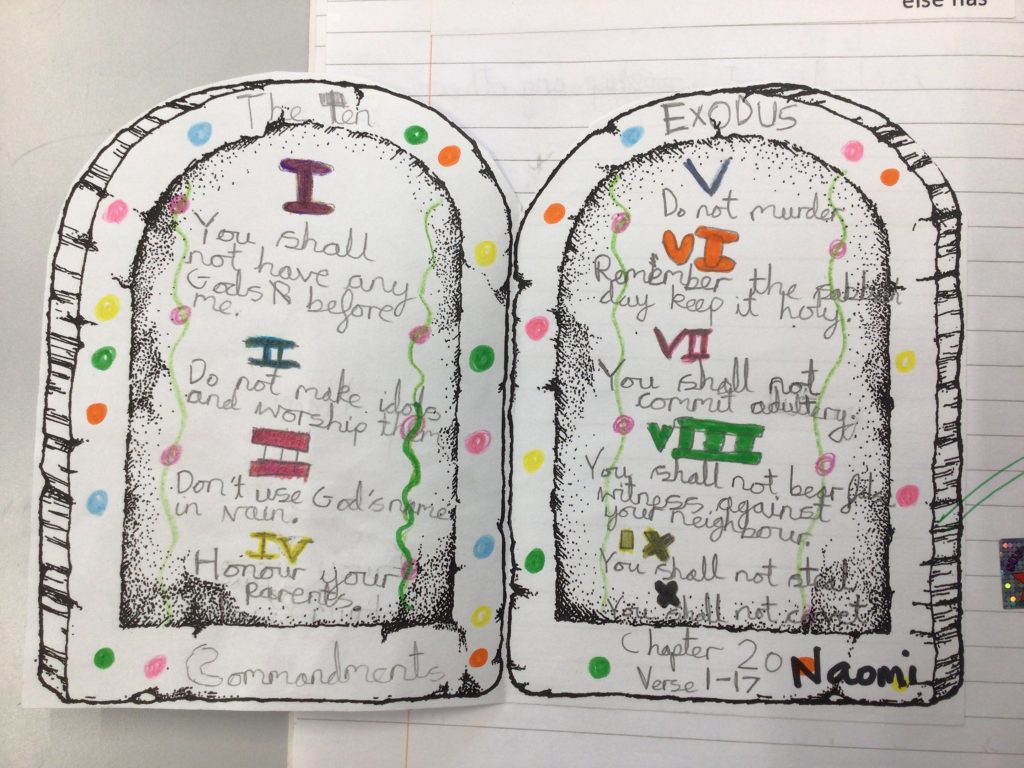 else has
The Ten
I
You shall
not have any
Gods before
me.
II
Do not make idols
and worship them
III
Don't use God's name
in vain.
IV
Honour your
parents.
Commandments
EXODUS
V
Do not murder
VI
Remember the sabbath
day keep it holy
VII
You shall not
commit adultery.
VIII
You shall not bear
witness against
your neighbour
IX
You shall not steal
X
You shall not covet
Chapter 20
Verse 1-17
Naomi